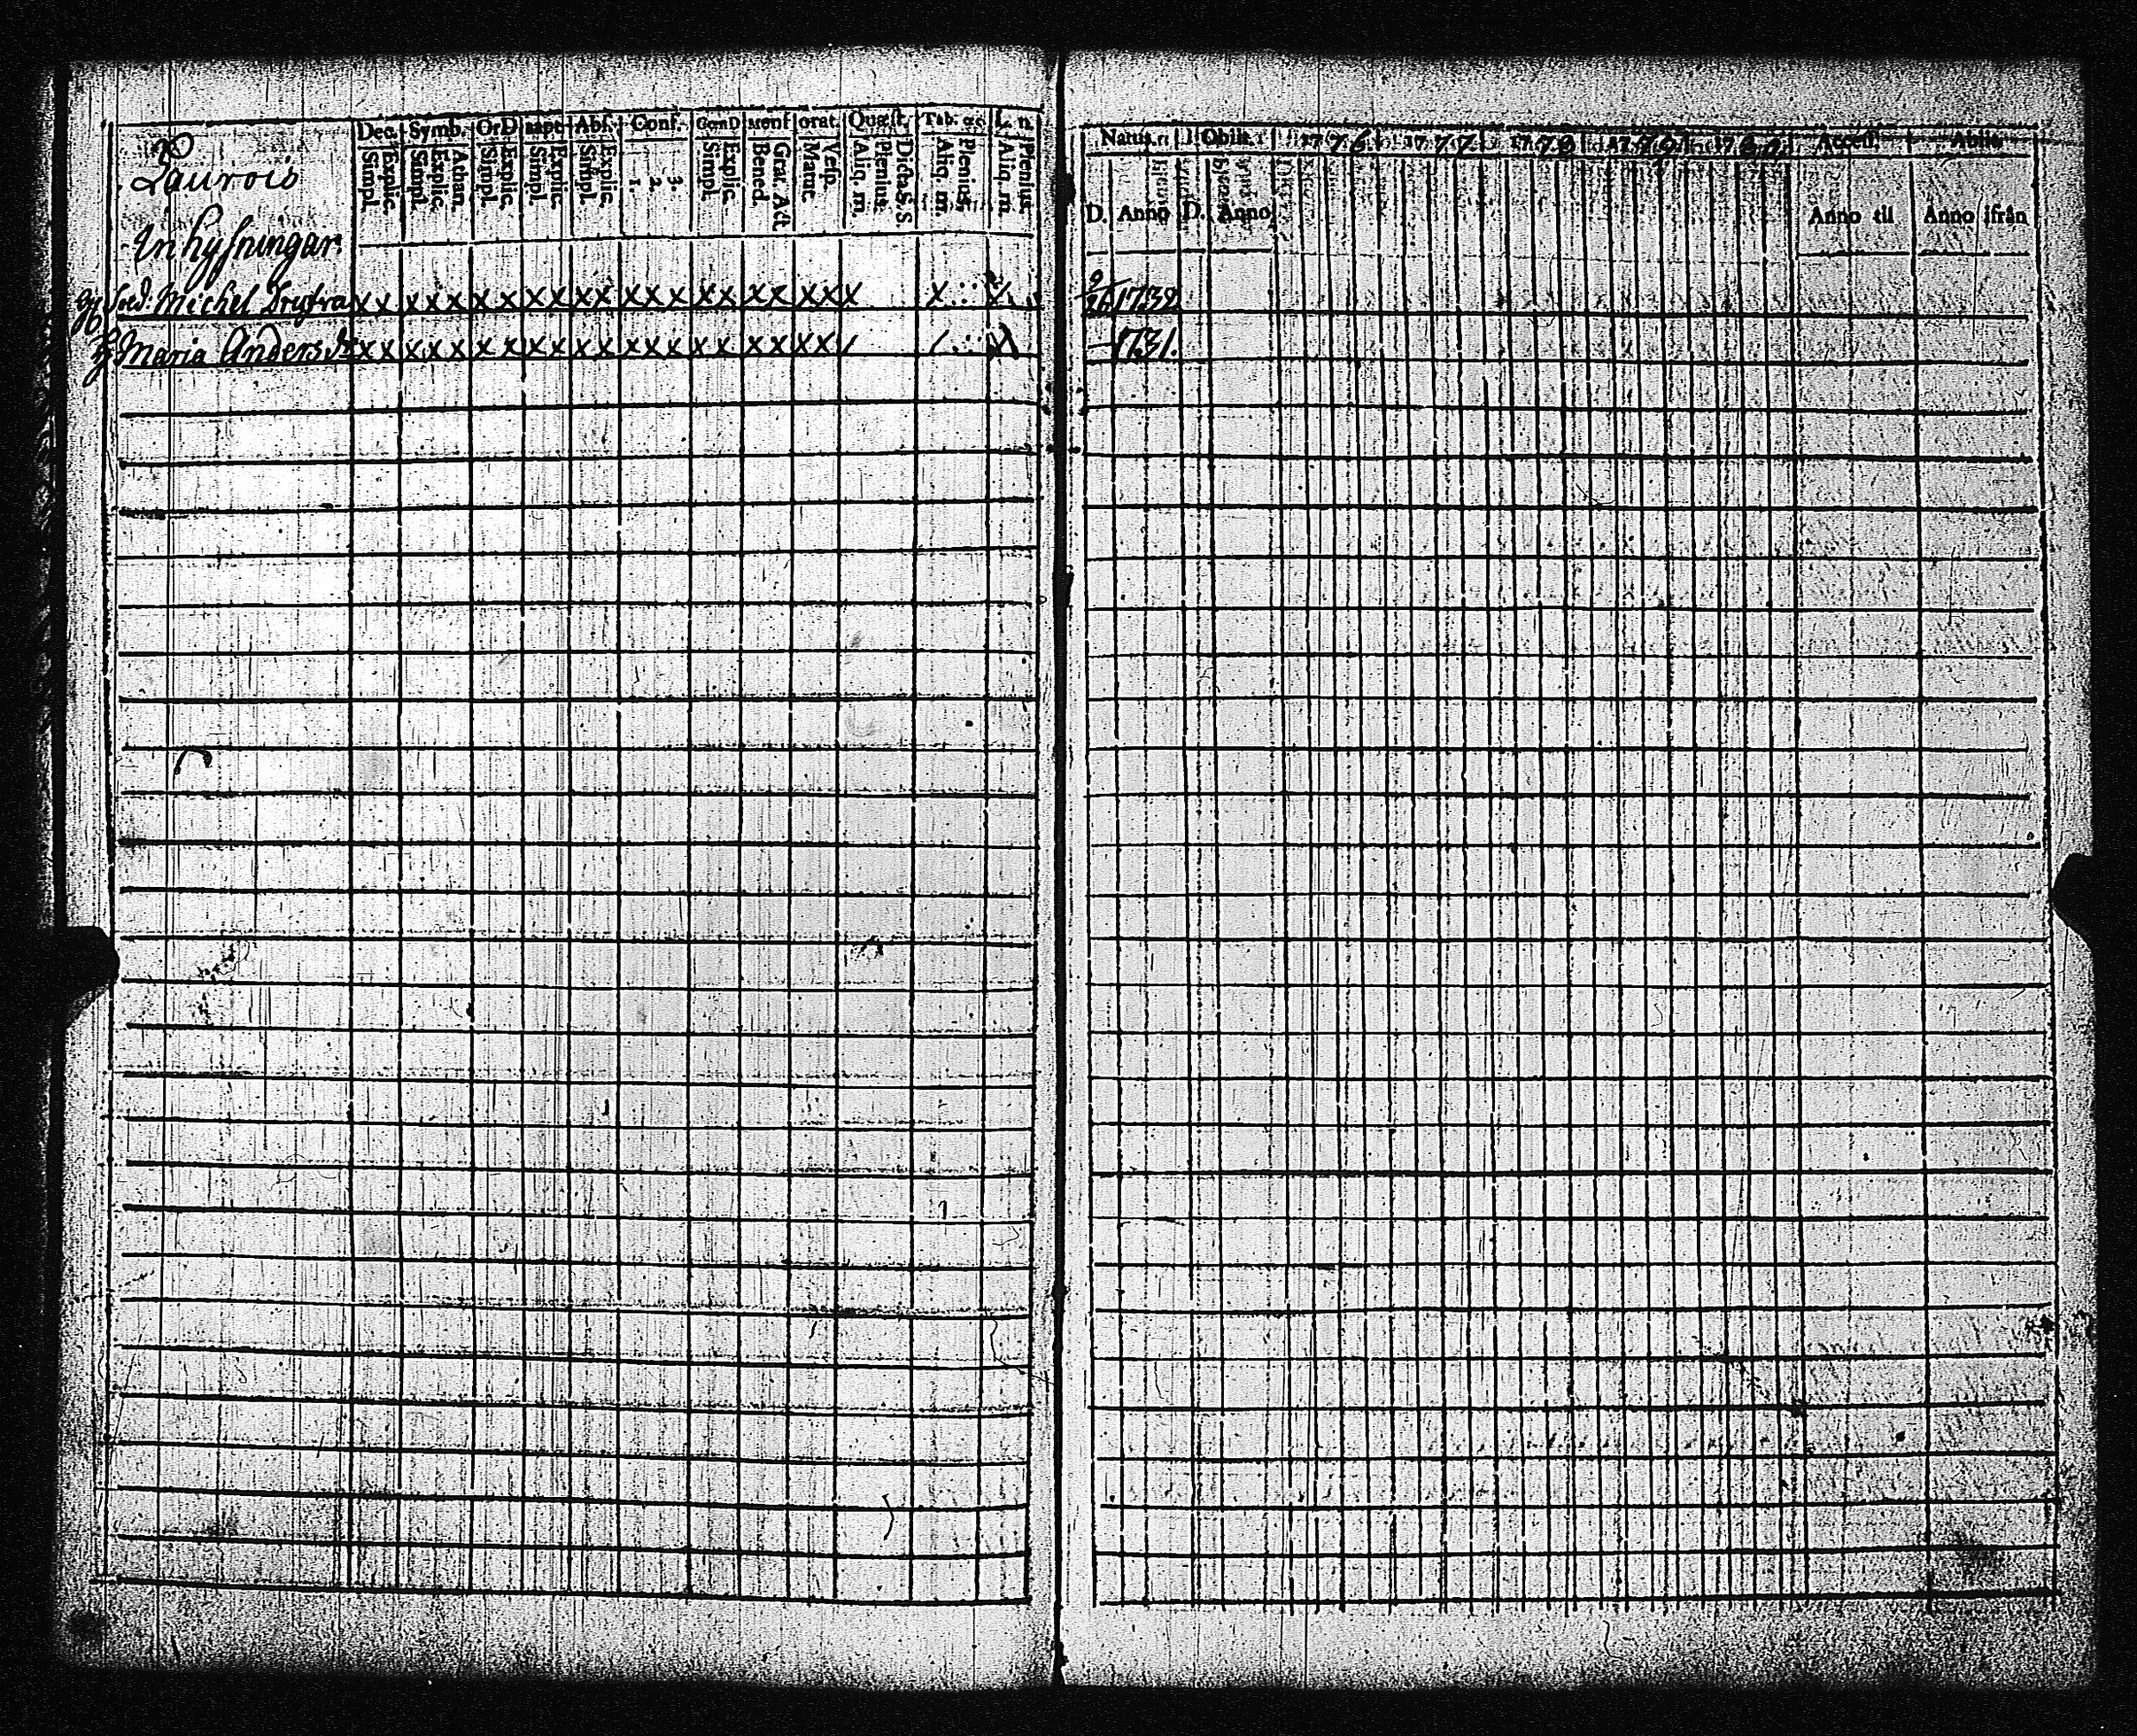 30
Laurois
Inhysningar
Dec. Symb. OrD Bapt Abs. Conf. Conf. orat. Quæst. Tab. œc L. n.
Simpl. Explic. Simpl. Explic. Athan. Simpl. Explic. Simpl. Explic. Simpl. Explic. 1. 2. 3. Simpl. Explic. Bened. Grat. Act Matut. Vesp. Aliq. m. Plenius. Dicta S. S. Aliq. m. Plenius. Aliq. m. Plenius.
Natus. Obiit. 1776 1777 1778 1779 1780 Access. Abiit.
D. Anno D. Anno Anno til Anno ifrån
Sold. Michel x x x x x x x x x x x x x x x x x x x x x x x x 9/26 1732
H Maria Anders dr x x x x x x x x x x x x x x x x x x x x — 1731.